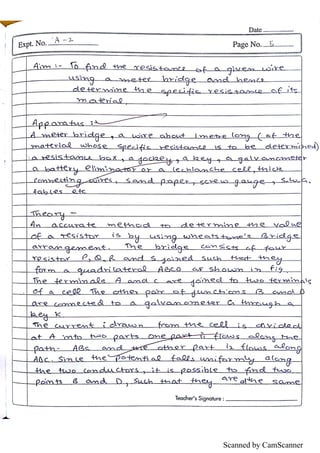 Date
Expt. No. A-2
Page No. 5
Aim :- To find the resistance of a given wire
using a meter bridge and hence
determine the specific resistance of its
material.
Apparatus :-
A meter bridge, a wire about 1 metre long (of the
material whose specific resistance is to be determined)
a resistance box, a jockey, a key, a galvanometer
a battery eliminator or a leclanche cell, thick
connecting wires, sand paper, screw gauge, S.W.G.
tables etc
Theory -
An accurate method to determine the value
of a resistor is by using wheatstone's Bridge
arrangement. The bridge consists of four
resistor P, Q, R and S joined such that they
form a quadrilateral ABCD as shown in fig.
The terminals A and C are joined to two terminals
of a cell The other pair of junctions B and D
are connected to a galvanometer G through a
key K
The current i drawn from the cell is divided
at A into two parts one part i1 flows along the
path- ABC and the other part i2 flows along
ADC. Since the potential falls uniformly along
the two conductors, it is possible to find two
points B and D, such that they are at the same
Teacher's Signature :
Scanned by CamScanner